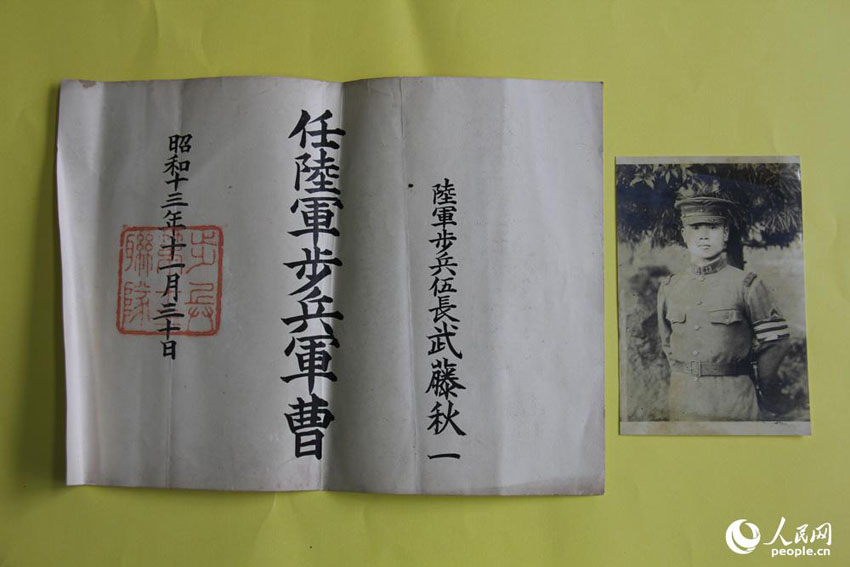 陸軍步兵伍長武藤秋一
任陸軍步兵軍曹
昭和十三年十一月三十日
人民网
people.cn